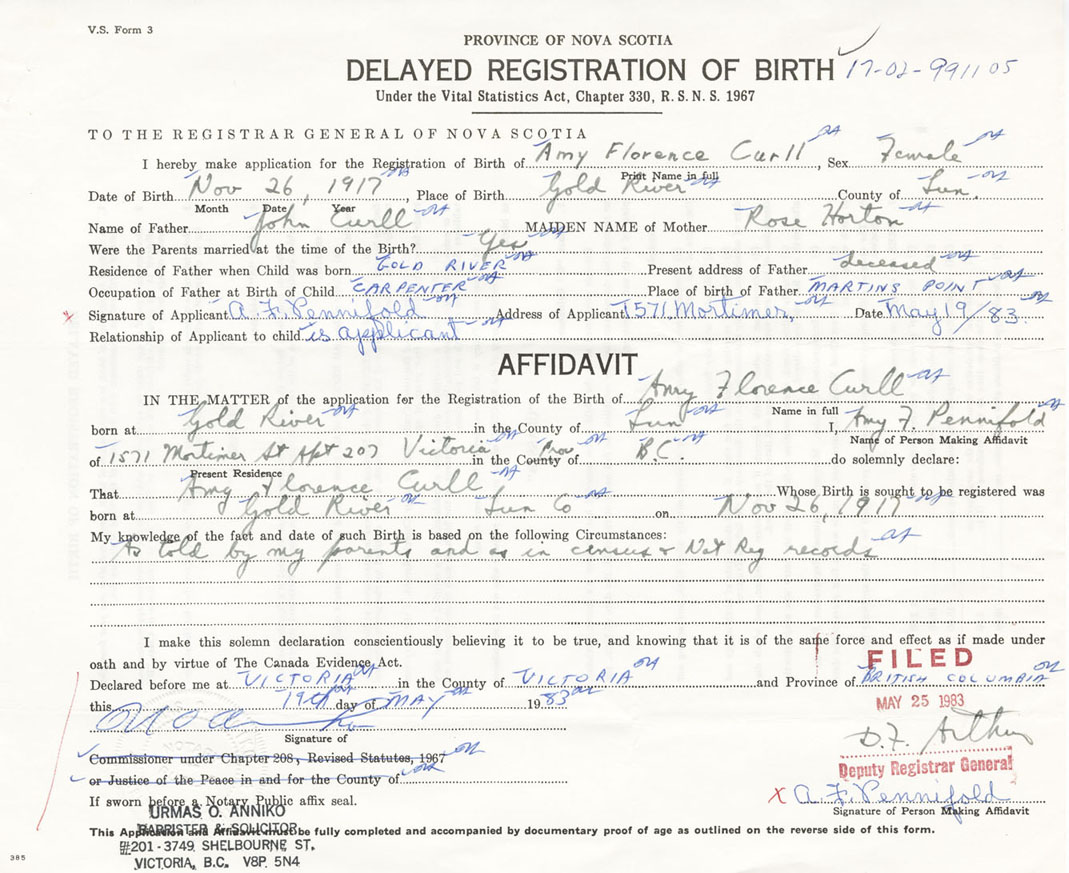 V.S. Form 3
PROVINCE OF NOVA SCOTIA
DELAYED REGISTRATION OF BIRTH 17-02-991105
Under the Vital Statistics Act, Chapter 330, R. S. N. S. 1967
TO THE REGISTRAR GENERAL OF NOVA SCOTIA
I hereby make application for the Registration of Birth of Amy Florence Curll, Sex Female
Print Name in full
Date of Birth Nov 26, 1917, Place of Birth Gold River County of Lun.
Month Date Year
Name of Father John Curll MAIDEN NAME of Mother Rose Horton
Were the Parents married at the time of the Birth? Yes
Residence of Father when Child was born GOLD RIVER Present address of Father deceased
Occupation of Father at Birth of Child CARPENTER Place of birth of Father MARTINS POINT
x Signature of Applicant A. F. Pennifold Address of Applicant 1571 Mortimer, Date May 19/83.
Relationship of Applicant to child is applicant
AFFIDAVIT
IN THE MATTER of the application for the Registration of the Birth of Amy Florence Curll
Name in full
born at Gold River in the County of Lun I, Amy F. Pennifold
Name of Person Making Affidavit
of 1571 Mortimer St Apt 207 Victoria in the County of Prov B.C. do solemnly declare:
Present Residence
That Amy Florence Curll Whose Birth is sought to be registered was
born at Gold River Lun Co on Nov 26, 1917
My knowledge of the fact and date of such Birth is based on the following Circumstances:
As told by my parents and as in census & Nat Reg records
I make this solemn declaration conscientiously believing it to be true, and knowing that it is of the same force and effect as if made under
oath and by virtue of The Canada Evidence Act.
FILED
Declared before me at VICTORIA in the County of VICTORIA and Province of BRITISH COLUMBIA
this 19th day of MAY 19 83
MAY 25 1983
Signature of
D. F. Arthur
Commissioner under Chapter 208, Revised Statutes, 1967
Deputy Registrar General
or Justice of the Peace in and for the County of
x A. F. Pennifold
If sworn before a Notary Public affix seal.
Signature of Person Making Affidavit
URMAS O. ANNIKO
BARRISTER & SOLICITOR
This Application and Affidavit must be fully completed and accompanied by documentary proof of age as outlined on the reverse side of this form.
#201 - 3749 SHELBOURNE ST.
VICTORIA, B.C. V8P 5N4
385